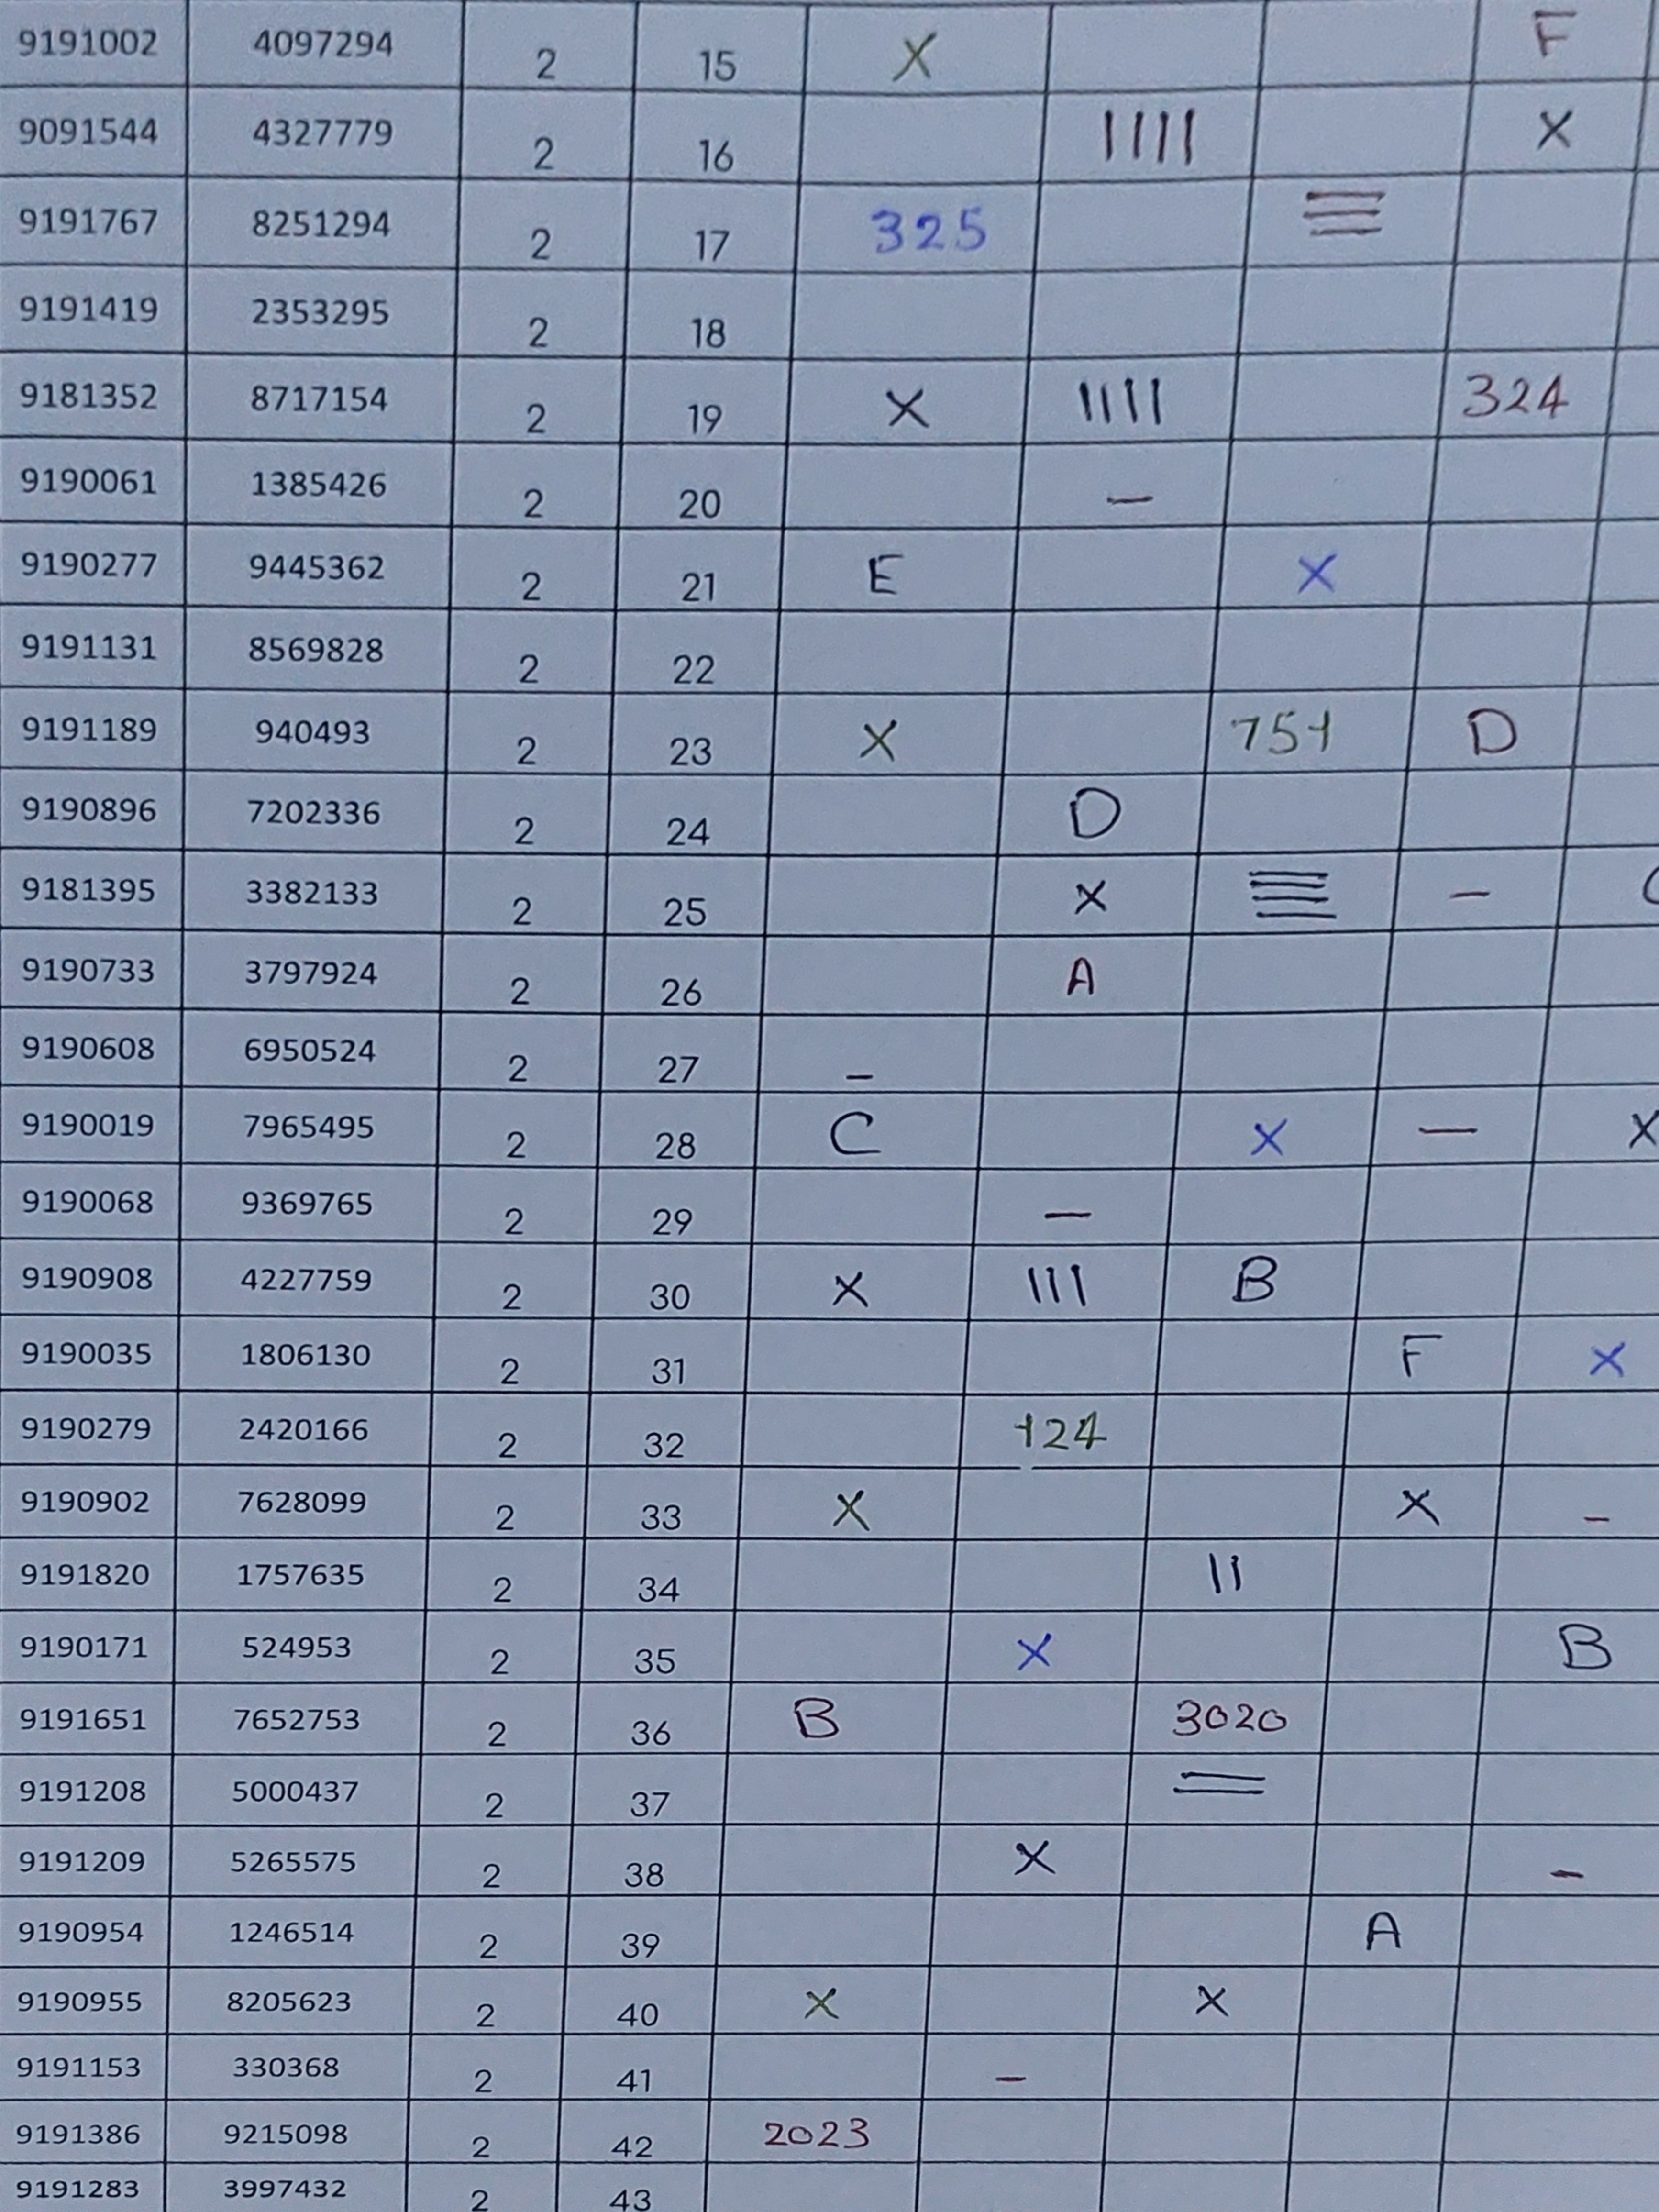 9191002 4097294 2 15 X F
9091544 4327779 2 16 | | | | X
9191767 8251294 2 17 325 ☰
9191419 2353295 2 18
9181352 8717154 2 19 X | | | | 324
9190061 1385426 2 20 –
9190277 9445362 2 21 E X
9191131 8569828 2 22
9191189 940493 2 23 X 751 D
9190896 7202336 2 24 D
9181395 3382133 2 25 X –
9190733 3797924 2 26 A
9190608 6950524 2 27 –
9190019 7965495 2 28 C X – X
9190068 9369765 2 29 –
9190908 4227759 2 30 X | | | B
9190035 1806130 2 31 F X
9190279 2420166 2 32 124
9190902 7628099 2 33 X X –
9191820 1757635 2 34 | |
9190171 524953 2 35 X B
9191651 7652753 2 36 B 3020
9191208 5000437 2 37 =
9191209 5265575 2 38 X –
9190954 1246514 2 39 A
9190955 8205623 2 40 X X
9191153 330368 2 41 –
9191386 9215098 2 42 2023
9191283 3997432 2 43